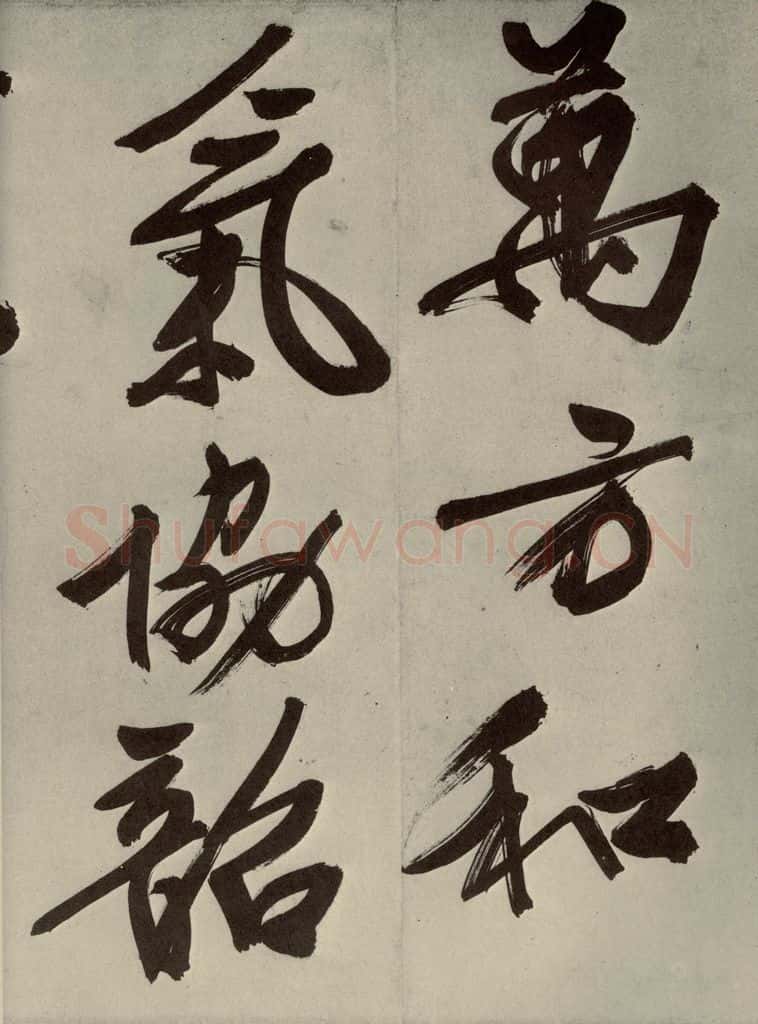 萬方和
氣協韶
Shufawang.CN